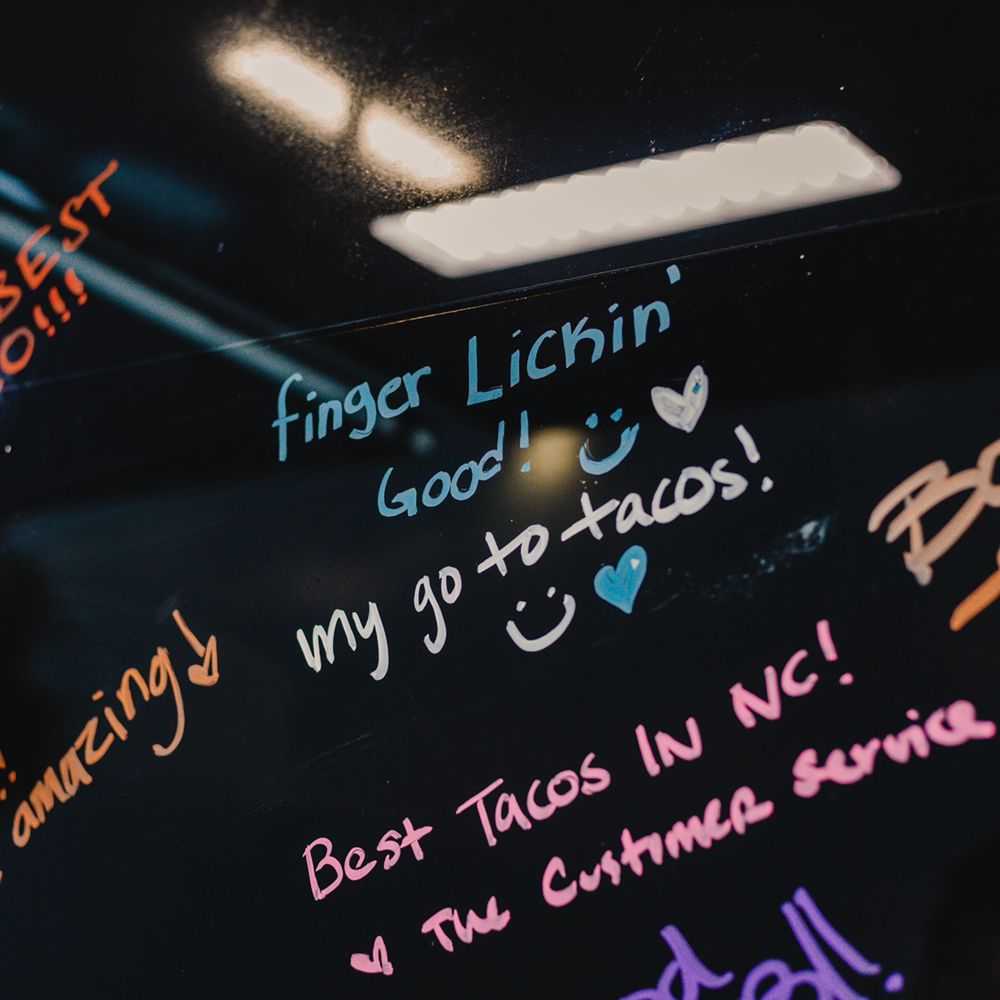 BEST
finger Lickin'
Good!
my go to tacos!
amazing!
Best Tacos IN NC!
The Customer service